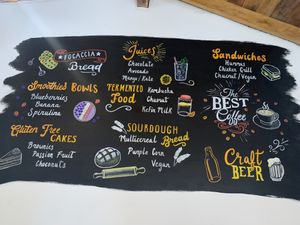 FOCACCIA
Bread
Smoothies BOWLS
Blueberries
Banana
Spirulina
Gluten Free
CAKES
Brownies
Passion Fruit
Choconuts
Juices
Chocolate
Avocado
Mango / Kale
FERMENTED
Food
Kombucha
Chucrut
Kefir Milk
SOURDOUGH
Multicereal Bread
Purple Corn
Vegan
Sandwiches
Hummus
Chicken Grill
Chucrut / Vegan
The
BEST
Coffee
Craft
BEER